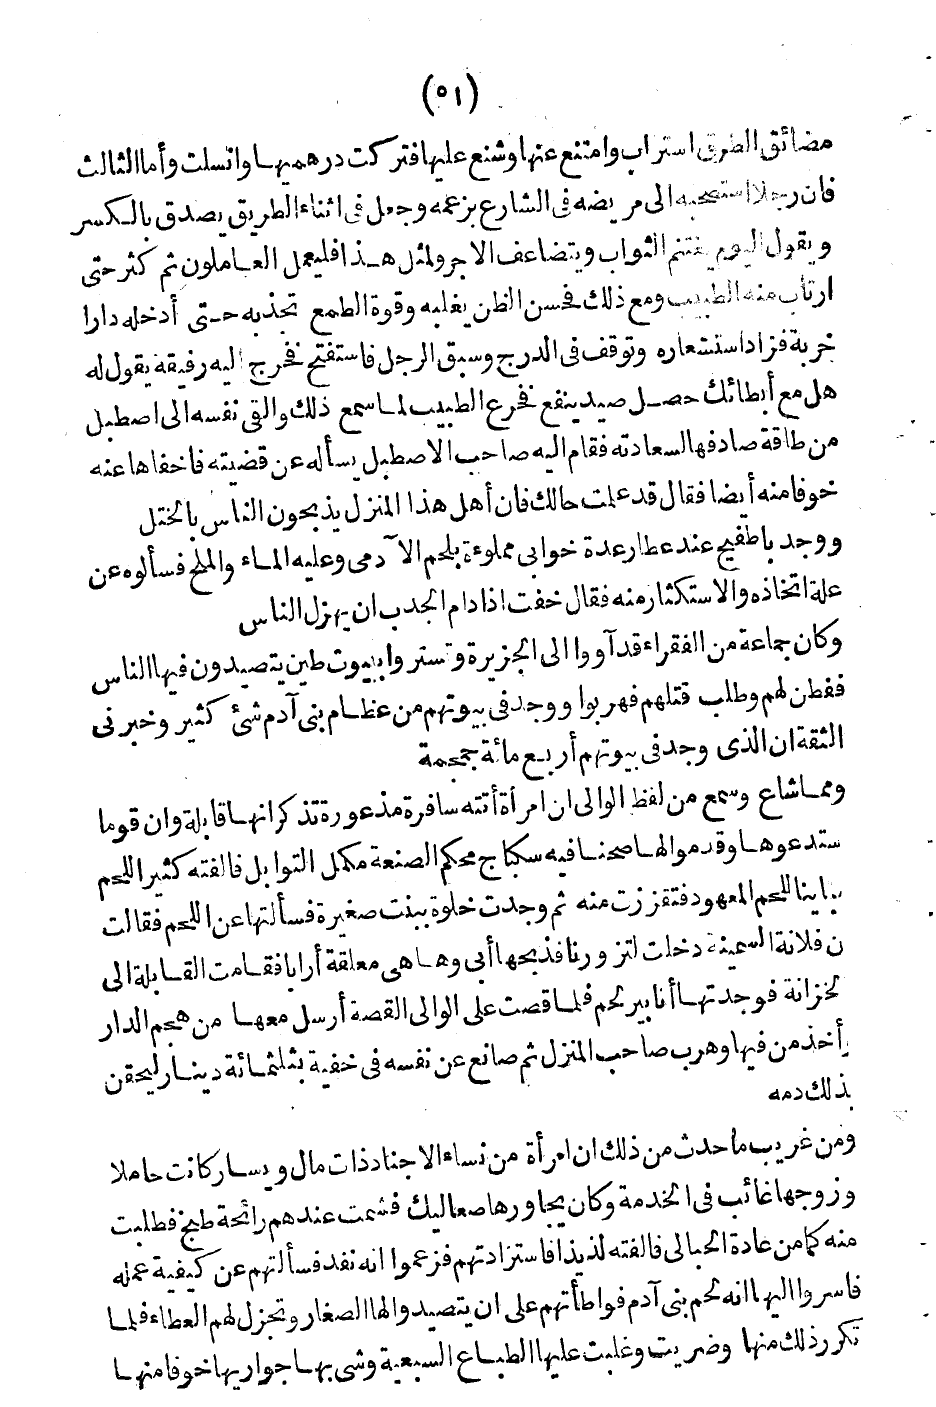 (٥١)
مضائق الطرق استراب وامتنع عنها وشنع عليها فتركت درهميها وانسلت وأما الثالث
فان رجلا استصحبه الى مريضه فى الشارع بزعمه وجعل فى اثناء الطريق يصدق بالكسر
ويقول اليوم يغتنم الثواب ويتضاعف الاجر ولمثل هذا فليعمل العاملون ثم كثر حتى
ارتاب منه الطبيب ومع ذلك فحسن الظن يغلبه وقوة الطمع تجذبه حتى أدخله دارا
خربة فزاد استشعاره وتوقف فى الدرج وسبق الرجل فاستفتح فخرج اليه رفيقه يقول له
هل مع أبطائك حصل صيد ينفع فخرع الطبيب لما سمع ذلك والقى نفسه الى اصطبل
من طاقة صادفها السعادته فقام اليه صاحب الاصطبل يسأله عن قضيته فاخفاها عنه
خوفا منه أيضا فقال قد علمت حالك فان أهل هذا المنزل يذبحون الناس بالختل
ووجد باطفيح عند عطار عدة خوابى مملوءة بلحم الآدمى وعليه الماء والملح فسألوه عن
علة اتخاذه والاستكثار منه فقال خفت اذا دام الجدب ان يهزل الناس
وكان جماعة من الفقراء قد آووا الى الجزيرة وتستروا ببيوت طين يتصيدون فيها الناس
ففطن لهم وطلب قتلهم فهربوا ووجد فى بيوتهم من عظام بنى آدم شئ كثير وخبرنى
الثقة ان الذى وجد فى بيوتهم أربع مائة جمجمة
ومما شاع وسمع من لفظ الوالى ان امرأة أتته سافرة مذعورة تذكر انها قابلة وان قوما
ستدعوها وقدموا لها صحنا فيه سكباج محكم الصنعة مكمل التوابل فالفته كثير اللحم
بباينا للحم المعهود فتقززت منه ثم وجدت خلوة ببنت صغيرة فسألتها عن اللحم فقالت
ن فلانة السمينة دخلت لتزورنا فذبحها أبى وها هى معلقة أرابا فقامت القابلة الى
لخزانة فوجدتها أنابير لحم فلما قصت على الوالى القصة أرسل معها من هجم الدار
رأخذ من فيها وهرب صاحب المنزل ثم صانع عن نفسه فى خفية بثلثمائة دينار ليحقن
بذلك دمه
ومن غريب ما حدث من ذلك ان امرأة من نساء الاجناد ذات مال ويسار كانت حاملا
وزوجها غائب فى الخدمة وكان يجاورها صعاليك فشمت عندهم رائحة طبخ فطلبت
منه كما من عادة الحبالى فالفته لذيذا فاستزادتهم فزعموا انه نفد فسألتهم عن كيفية عمله
فاسروا اليها انه لحم بنى آدم فواطأتهم على ان يتصيدوا لها الصغار وتجزل لهم العطاء فلما
تكرر ذلك منها وضريت وغلبت عليها الطباع السبعية وشى بها جواريها خوفا منها